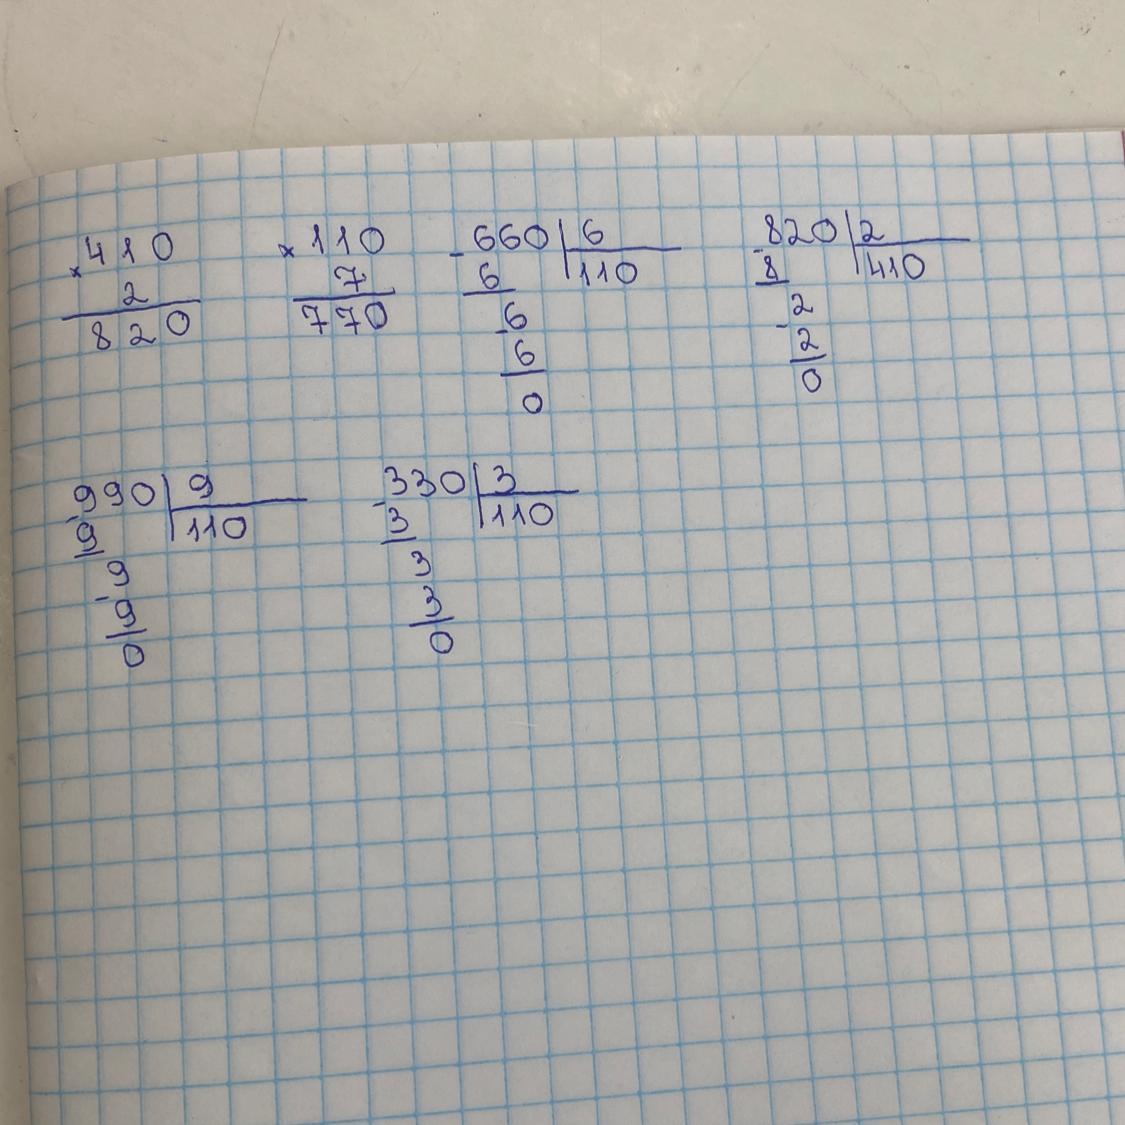 × 410
2
820
× 110
7
770
- 660 | 6
6 | 110
- 6
6
0
- 820 | 2
8 | 410
- 2
2
0
- 990 | 9
9 | 110
- 9
9
0
- 330 | 3
3 | 110
3
3
0